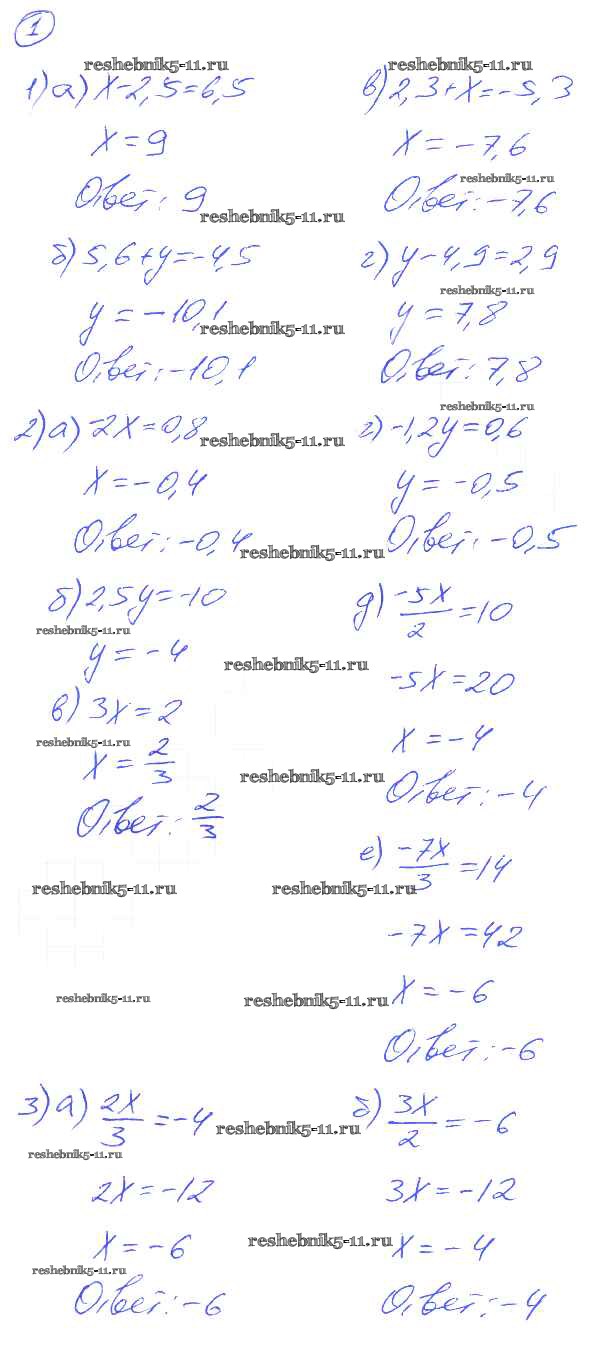 1
reshebnik5-11.ru reshebnik5-11.ru
1) а) x-2,5=6,5 в) 2,3+x=-5,3
x=9 x=-7,6
reshebnik5-11.ru
Ответ: 9 Ответ: -7,6
reshebnik5-11.ru
б) 5,6+y=-4,5 г) y-4,9=2,9
reshebnik5-11.ru
y=-10,1 y=7,8
reshebnik5-11.ru
Ответ: -10,1 Ответ: 7,8
reshebnik5-11.ru
2) а) -2x=0,8 г) -1,2y=0,6
reshebnik5-11.ru
x=-0,4 y=-0,5
Ответ: -0,4 Ответ: -0,5
reshebnik5-11.ru
б) 2,5y=-10 д) -5x/2=10
reshebnik5-11.ru
y=-4
reshebnik5-11.ru
-5x=20
в) 3x=2
reshebnik5-11.ru x=-4
x=2/3
reshebnik5-11.ru
Ответ: 2/3 Ответ: -4
е) -7x/3=14
reshebnik5-11.ru reshebnik5-11.ru
-7x=42
reshebnik5-11.ru reshebnik5-11.ru
x=-6
Ответ: -6
3) а) 2x/3=-4 б) 3x/2=-6
reshebnik5-11.ru
reshebnik5-11.ru
2x=-12 3x=-12
reshebnik5-11.ru
x=-6 x=-4
reshebnik5-11.ru
Ответ: -6 Ответ: -4